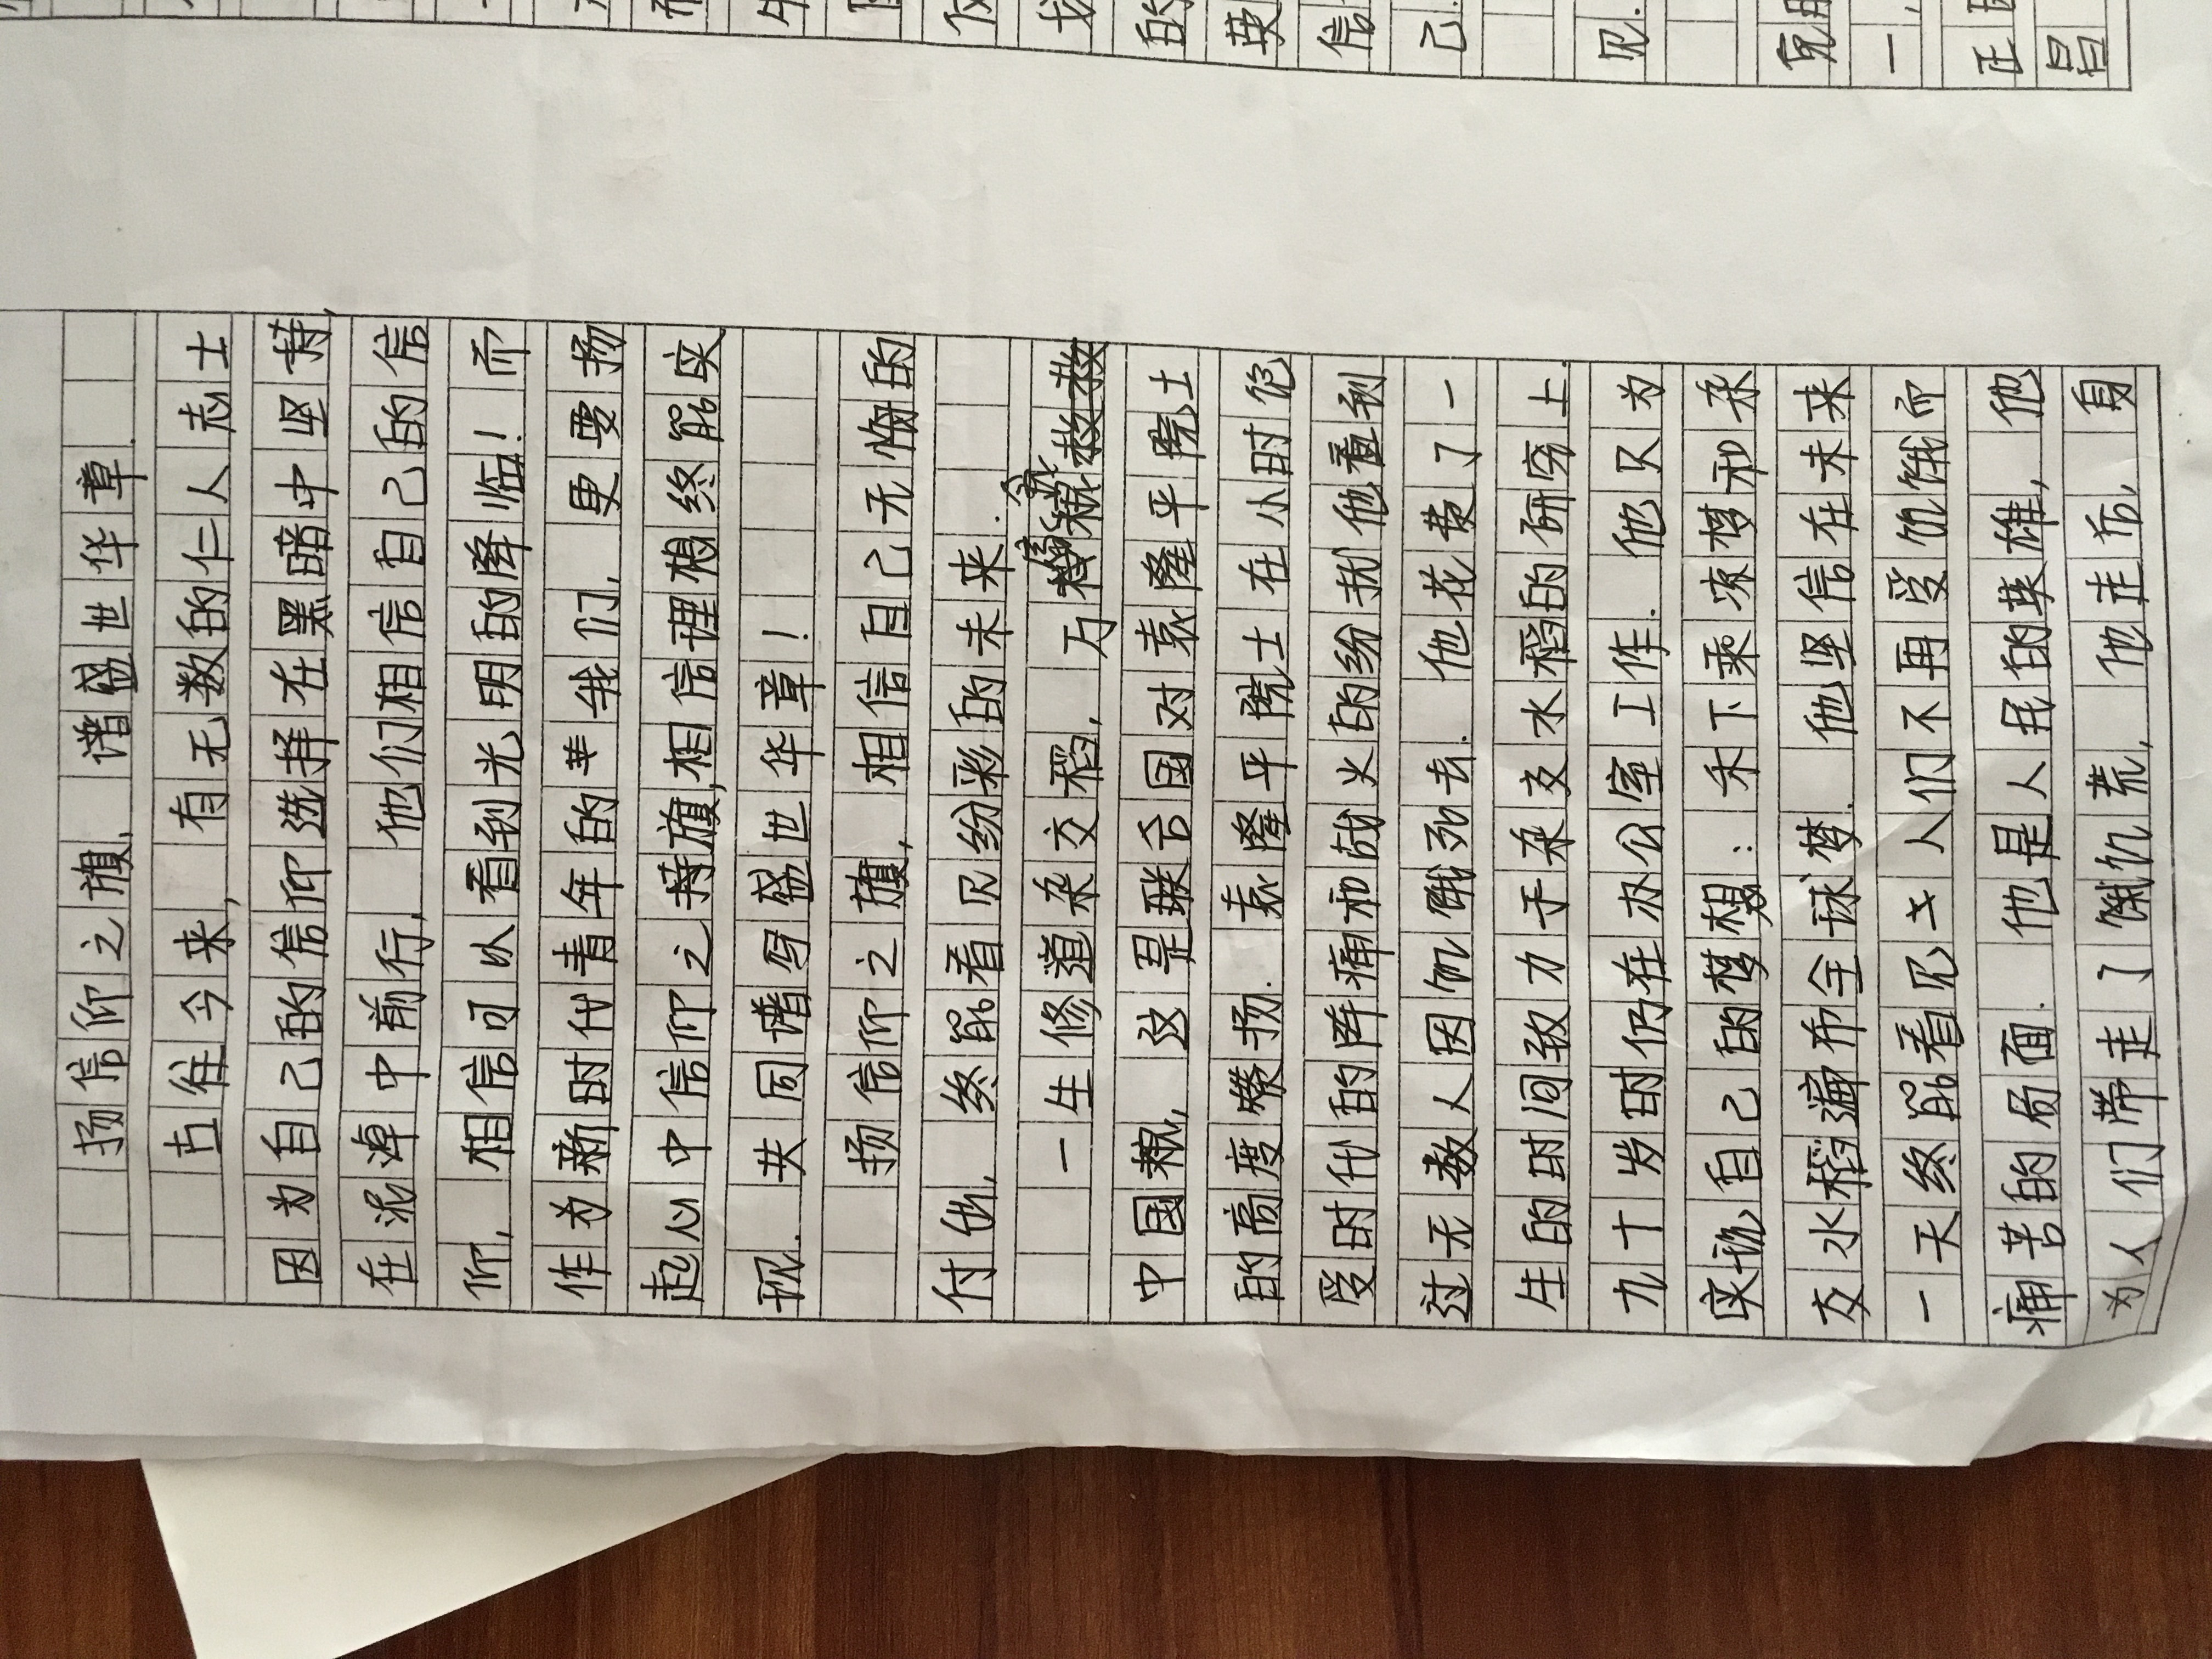 扬信仰之旗,谱盛世华章.
古往今来,有无数的仁人志士
因为自己的信仰选择在黑暗中坚持,
在泥淖中前行,他们相信自己的信
仰,相信可以看到光明的降临!而
作为新时代青年的我们,更要扬
起心中信仰之持旗,相信理想终能实
现.共同谱写盛世华章!
扬信仰之旗,相信自己无悔的
付出,终能看见纷彩的未来.
一生修道杂交稻,万
中国粮,这是联合国对袁隆平院士
的高度赞扬.袁隆平院士在小时饱
受时代的阵痛和战火的纷扰他看到
过无数人因饥饿死去.他花费了一
生的时间致力于杂交水稻的研究上.
九十岁时仍在办公室工作.他只为
实现自己的梦想:禾下乘凉梦和杂
交水稻满布全球梦.他坚信在未来
一天终能看见人们不再受饥饿而
痛苦的局面.他是人民的英雄,他
为人们带走了饿饥荒,他走后,身
的
英
信
己.
见.
一,
正